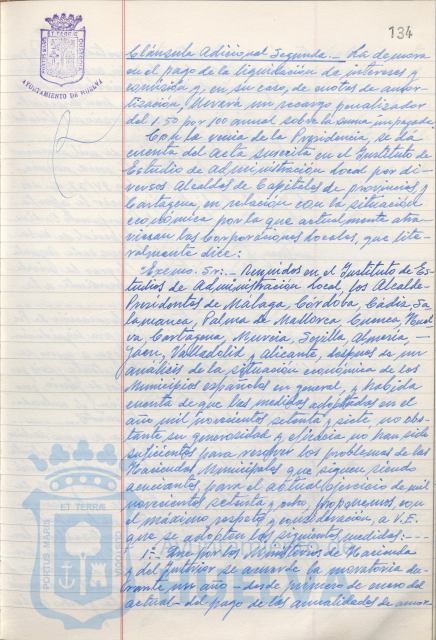 134
PORTUS MARIS ET TERRÆ CUSTODIA
AYUNTAMIENTO DE HUELVA
Cláusula Adicional Segunda.- La demora
en el pago de la liquidación de intereses y
comisión y, en su caso, de cuotas de amor-
tización, llevará un recargo penalizador
del 1,50 por 100 anual sobre la suma impagada
Con la venia de la Presidencia, se dá
cuenta del Acta suscrita en el Instituto de
Estudio de Administración Local por di-
versos Alcaldes de Capitales de provincia, y
Cartagena, en relación con la situación
económica por la que actualmente atra-
viesan las Corporaciones Locales, que lite-
ralmente dice:
"Excmo. Sr:- Reunidos en el Instituto de Es-
tudios de Administración Local, los Alcalde-
Presidentes de Málaga, Córdoba, Cádiz, Sa-
lamanca, Palma de Mallorca, Cuenca, Huel
va, Cartagena, Murcia, Sevilla, Almería, -
Jaén, Valladolid y Alicante, después de un
análisis de la situación económica de los
Municipios españoles en general, y habida
cuenta de que las medidas adoptadas en el
año mil novecientos setenta y siete, no obs-
tante su generosidad y eficacia no han sido
suficientes para resolver los problemas de las
Haciendas Municipales que siguen siendo
acuciantes, para el actual ejercicio de mil
novecientos setenta y ocho, proponemos, con
el máximo respeto y consideración, a V.E.
que se adopten las siguientes medidas: - - -
1ª.- Que por los Ministerios de Hacienda
y del Interior se acuerde la moratoria du-
rante un año - desde primero de enero del
actual - del pago de las anualidades de amor-
PORTUS MARIS ET TERRÆ CUSTODIA